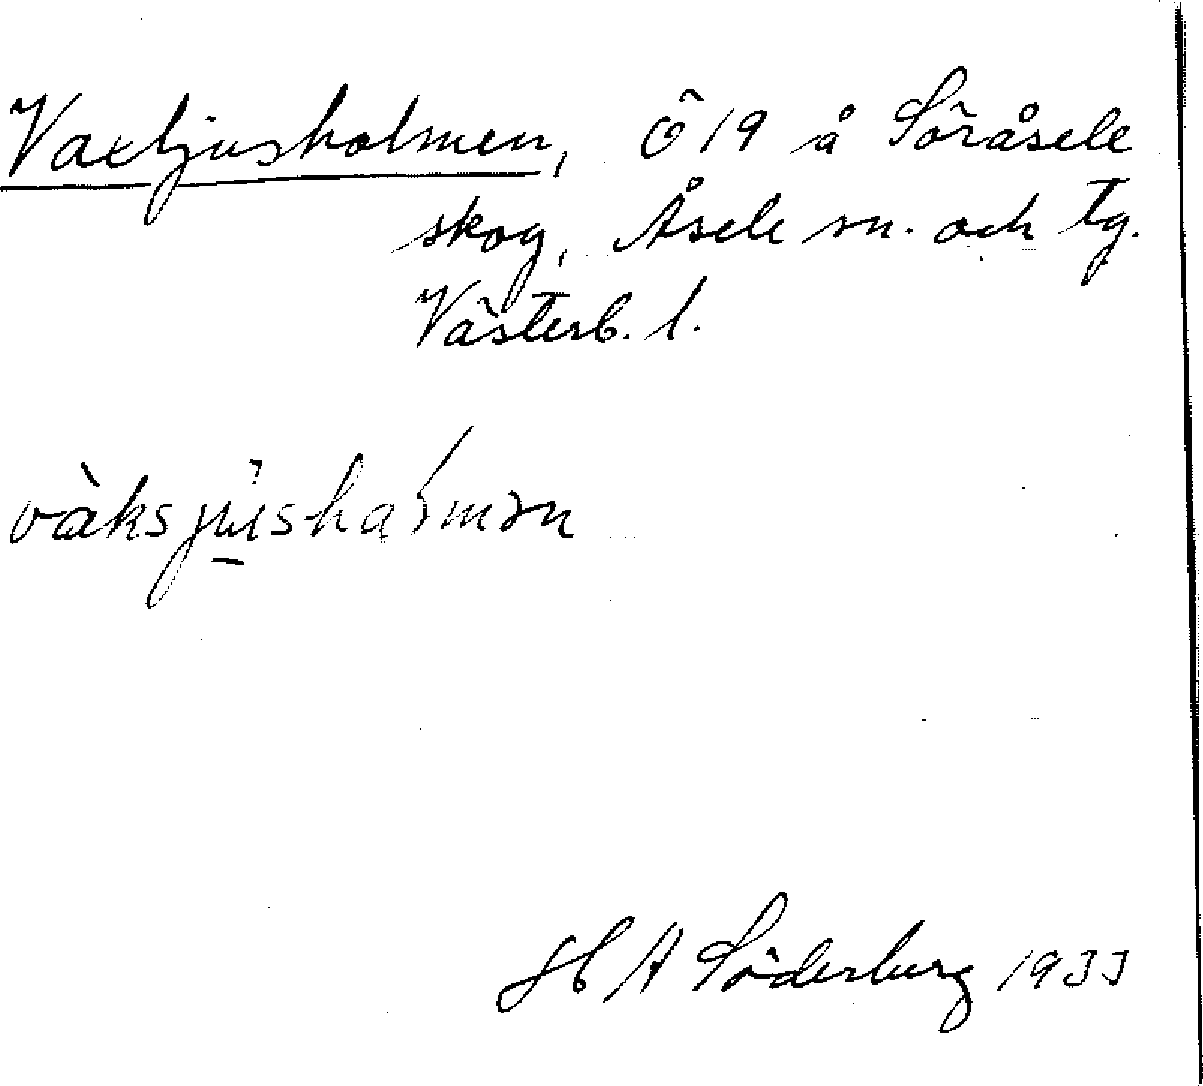 Vaxljusholmen, Ö 19 å Söråsele
skog, Åsele sn. och tg.
Västerb. l.
H A Söderberg 1933